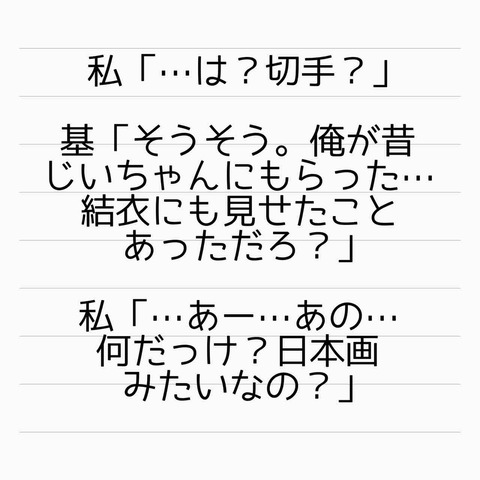 私「…は？切手？」
基「そうそう。俺が昔
じいちゃんにもらった…
結衣にも見せたこと
あっただろ？」
私「…あー…あの…
何だっけ？日本画
みたいなの？」